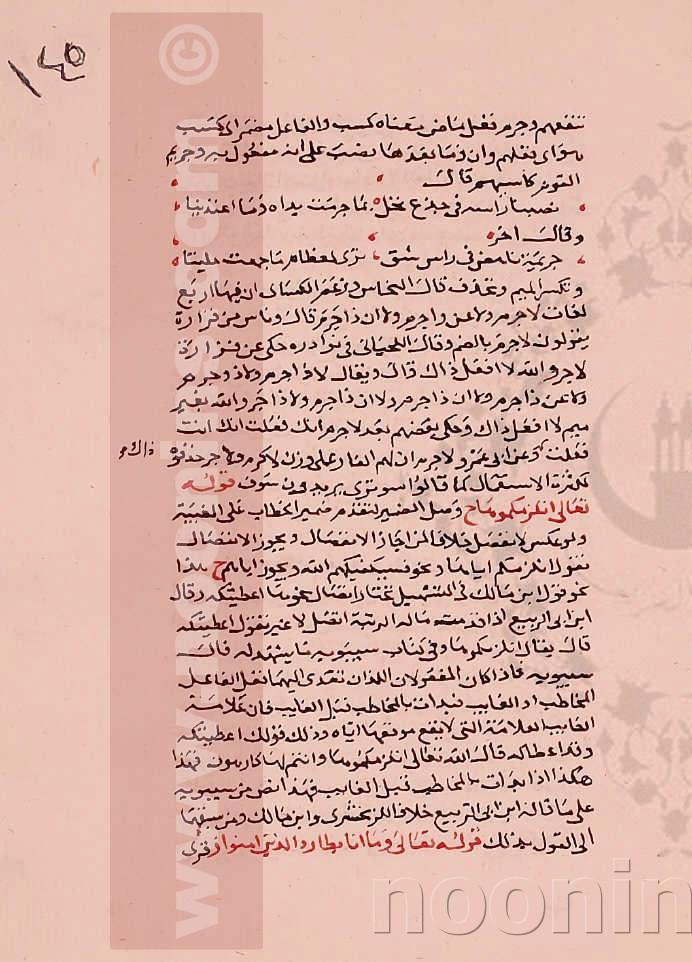 ١٤٥
تنفعهم وجرم فعل ماض معناه كسب والفاعل مضمر اى كسب
هو اى فعلهم وان وما بعدها نصب على انه مفعول به وجريم
القوم كاسبهم قال
نصبنا راسه فى جذع نخل بما جرمت يداه وما اعتدينا
وقال اخر
جريمة ناهض فى راس نيق ترى لعظام ما جمعت صليبا
وتكسر الميم وتحذف قال النحاس وزعم الكساى ان فيها اربع
لغات لاجرم ولا عن ذا جرم ولا ان ذا جرم قال وناس من فزارة
يقولون لاجرم بالضم وقال اللحيانى فى نوادره حكى عن فزارة
لاجر والله لا افعل ذاك قال ويقال لا ذا جرم ولا ذو جرم
ولا عن ذا جرم ولا ان ذا جرم ولا ان ذا جرم ولا ذا جر والله بغير
ميم لا افعل ذاك وحكى بعضهم بعد لاجرم انك فعلت انك انت
فعلت وعن ابى عمرو لاجرم ان لهم النار على وزن لاكرم ولاجر حذفوه
ذاك
لكثرة الاستعمال كما قالوا سو ترى يريدون سوف قوله
تعالى انلزمكموها ح وصل الضمير لتقدم ضمير الخطاب على الغيبة
ولو عكس لانفصل خلافا لمن اجاز الاتصال ويجوز الانفصال
نقول انلزمكم اياها ونحو فسيكفيكهم الله ويجوز اياهم ح هذا
نحو قول ابن مالك فى التسهيل تختار اتصال نحو ها اعطيتكه وقال
ابن ابى الربيع اذا قدمت ماله الرتبة اتصل لا غير تقول اعطيتكه
قال تعالى انلزمكموها وفى كتاب سيبويه ما يشهد له قال
سيبويه فاذا كان المفعولان اللذان تعدى اليهما فعل الفاعل
المخاطب او الغايب فبدات بالمخاطب قبل الغايب فان علامة
الغايب العلامة التى لا يقع موقعها اياه وذلك قولك اعطيتكه
وقد اعطاكه قال الله تعالى انلزمكموها وانتم لها كارهون فهذا
هكذا اذا بدات بالمخاطب قبل الغايب فهذا نص من سيبويه
على ما قاله ابن ابى الربيع خلافا للزمخشرى وابن مالك ومن سبقهما
الى القول بذلك قوله تعالى وما انا بطارد الذين امنوا ز قرى
noonin